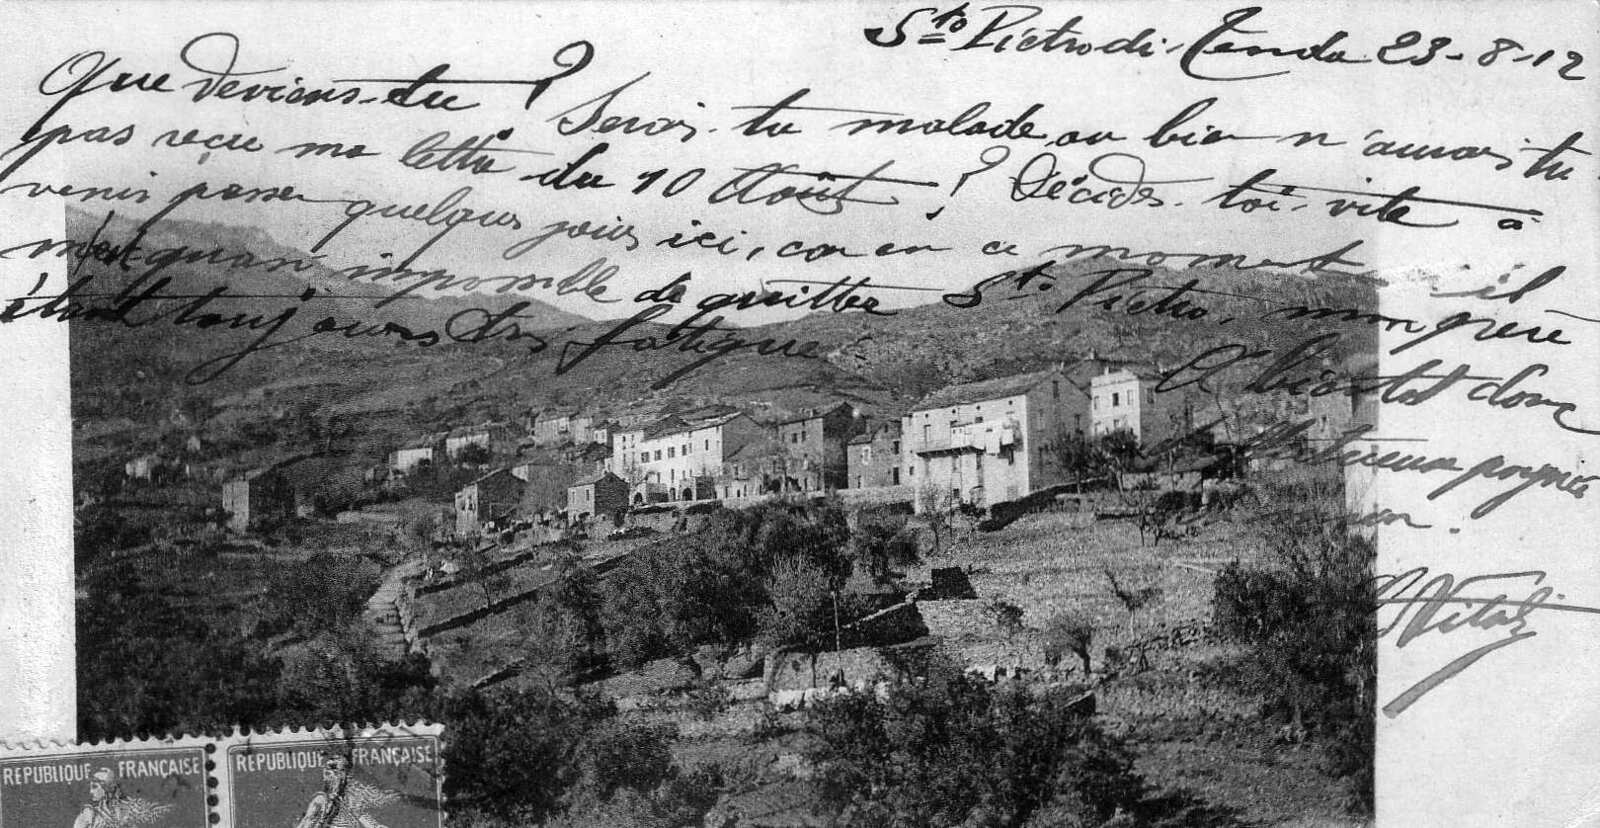 Sto Pietro di Tenda 23-8-12
Que deviens-tu ? Serais-tu malade ou bien n'aurais tu
pas reçu ma lettre du 10 Août ? Décides-toi vite à
venir passer quelques jours ici, car en ce moment il
m'est quasi impossible de quitter Sto Pietro, mon père
étant toujours très fatigué
A bientôt donc
affectueuse poignée
main.
Vitali
REPUBLIQUE FRANÇAISE REPUBLIQUE FRANÇAISE